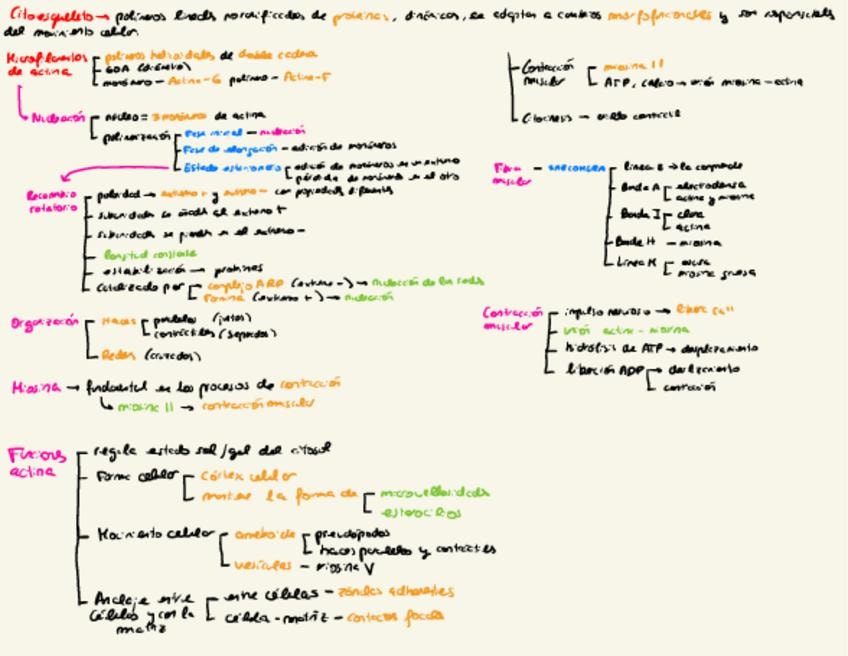 Citoesqueleto → polímeros lineales no ramificados de proteínas, dinámicos, se adaptan a cambios morfofuncionales y son responsables
del movimiento celular.
Microfilamentos de actina
polímeros helicoidales de doble cadena
60A (diámetro)
monómero - Actina-G polímero - Actina-F
Nucleación
núcleo = 3 monómeros de actina
polimerización
Fase inicial - nucleación
Fase de elongación - adición de monómeros
Estado estacionario
adición de monómeros en un extremo
pérdida de monómeros en el otro
Recambio rotatorio
polaridad → extremo + y extremo - con propiedades diferentes
subunidades se añaden al extremo +
subunidades se pierden en el extremo -
longitud constante
estabilización → proteínas
catalizado por
complejo ARP (extremo -) → nucleación de las redes
Formina (extremo +) → nucleación
Organización
Haces
paralelos (juntos)
contráctiles (separados)
Redes (cruzados)
Miosina → fundamental en los procesos de contracción
miosina II → contracción muscular
Funciones actina
regula estado sol/gel del citosol
Forma celular
Córtex celular
mantiene la forma de
microvellosidades
estereocilios
Movimiento celular
ameboide
pseudópodos
haces paralelos y contráctiles
vesículas - miosina V
Anclaje entre células y con la matriz
entre células - zónulas adherentes
célula-matriz - contactos focales
Contracción muscular
miosina II
ATP, calcio → unión miosina-actina
Citocinesis → anillo contráctil
Fibra muscular - SARCÓMERA
línea Z → la comprende
Banda A
electrodensa
actina y miosina
Banda I
clara
actina
Banda H - miosina
Línea M
oscura
miosina gruesa
Contracción muscular
impulso nervioso → libera Ca++
unión actina-miosina
hidrólisis de ATP → desplazamiento
liberación ADP
deslizamiento
contracción